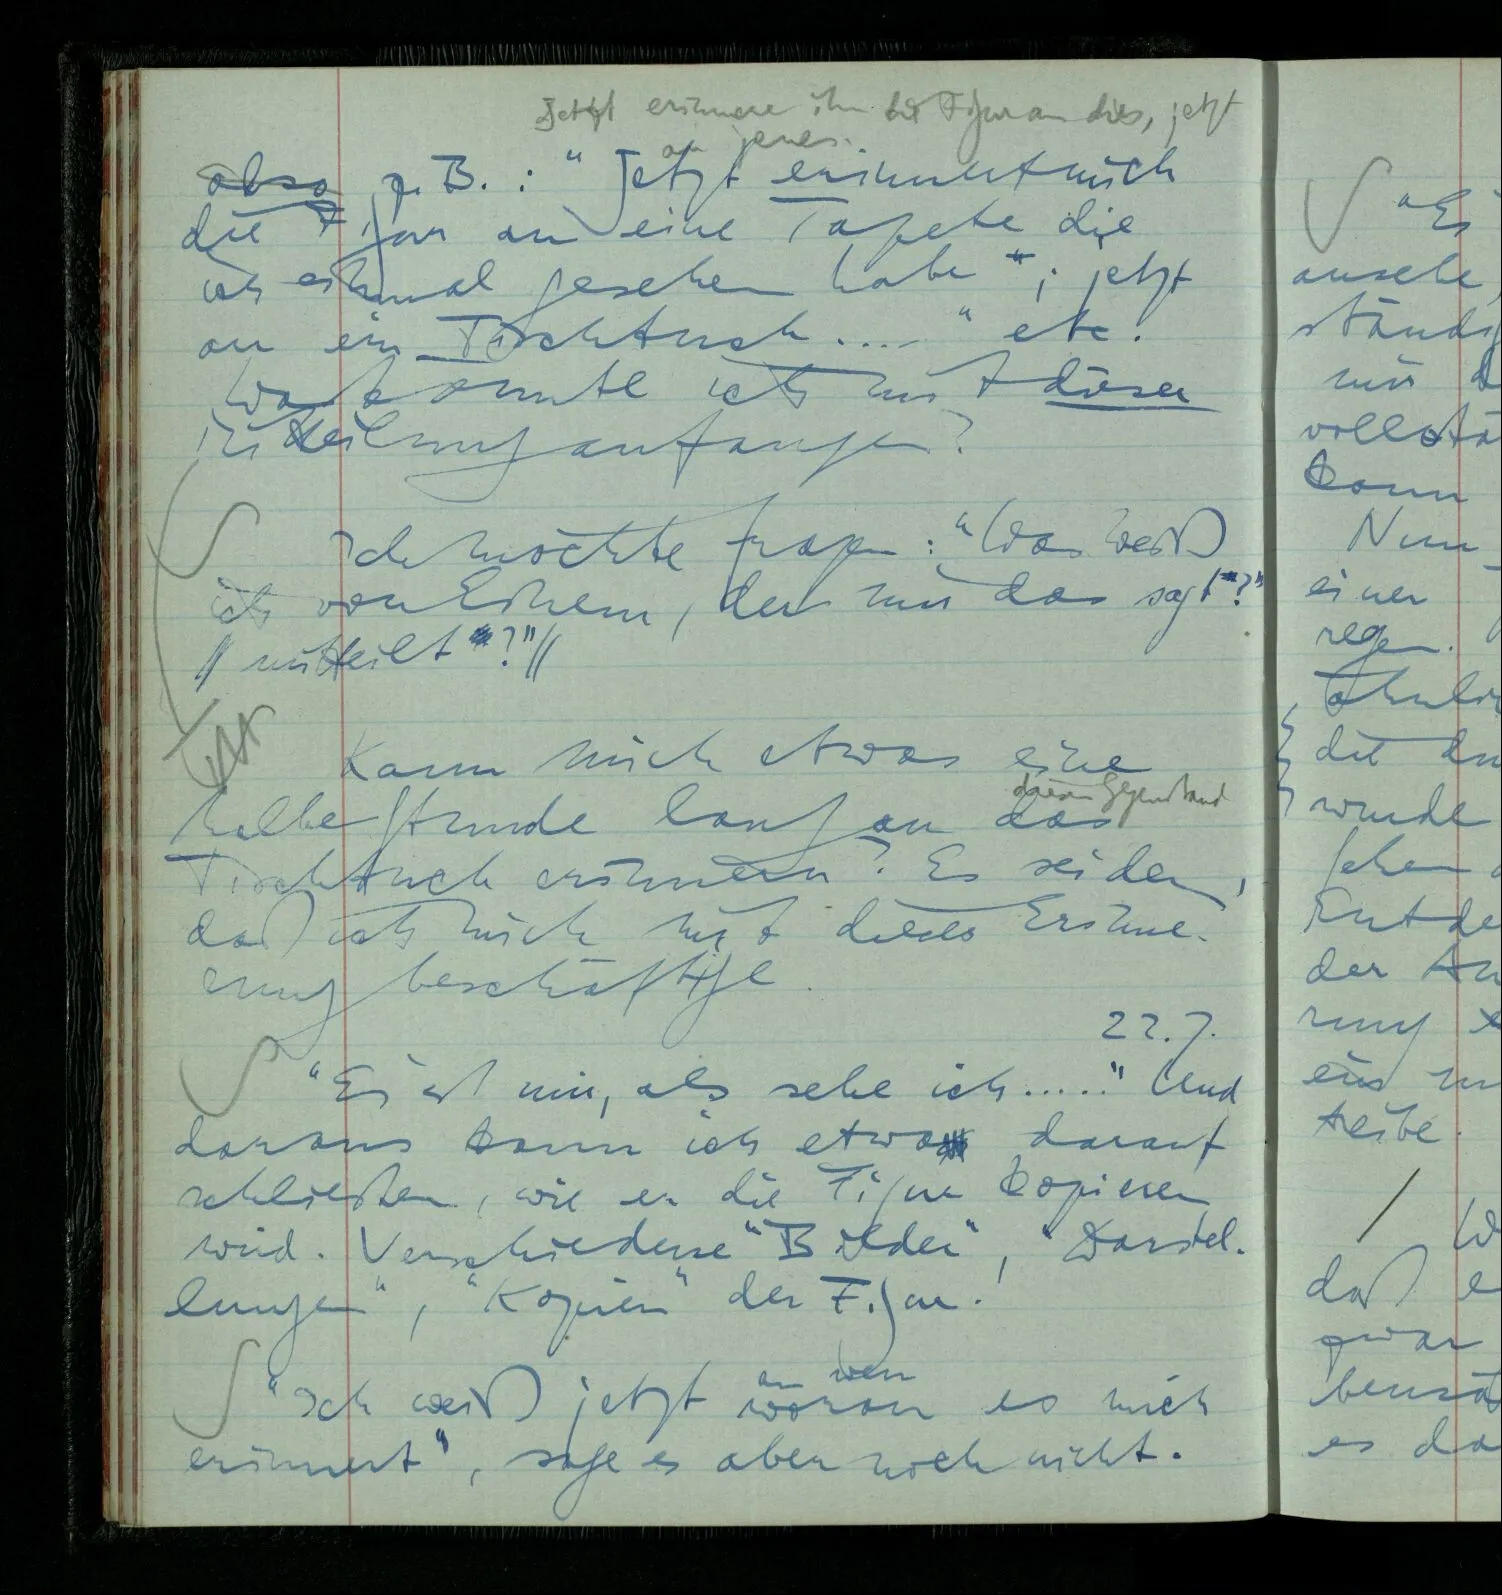 Jetzt erinnere ihn die Figur an dies, jetzt
an jenes.
also z.B.: "Jetzt erinnert mich
die Figur an eine Tapete die
ich einmal gesehen habe"; jetzt
an ein Tischtuch...." etc.
Was konnte ich mit dieser
Mitteilung anfangen?
∫ Ich möchte fragen: "Was weiß
ich von Einem, der mir das sagt?"
// mitteilt?"//
Kann mich etwas eine
diesen Gegenstand
halbe Stunde lang an das
Tischtuch erinnern? Es sei denn,
daß ich mich mit dieser Erinne-
rung beschäftige.
22.7.
∫ "Es ist mir, als sehe ich....." Und
daraus kann ich etwa darauf
schließen, wie er die Figur kopieren
wird. Verschiedene "Bilder", "Darstel-
lungen", "Kopien" der Figur.
an wen
∫ "Ich weiß jetzt woran es mich
erinnert", sage es aber noch nicht.
∫ "Es
ansehe,
ständig
mir
kann
Nun
einer
regen.
wurde
der
ring
eins
treibe.
/ W
daß e
zwar
es da